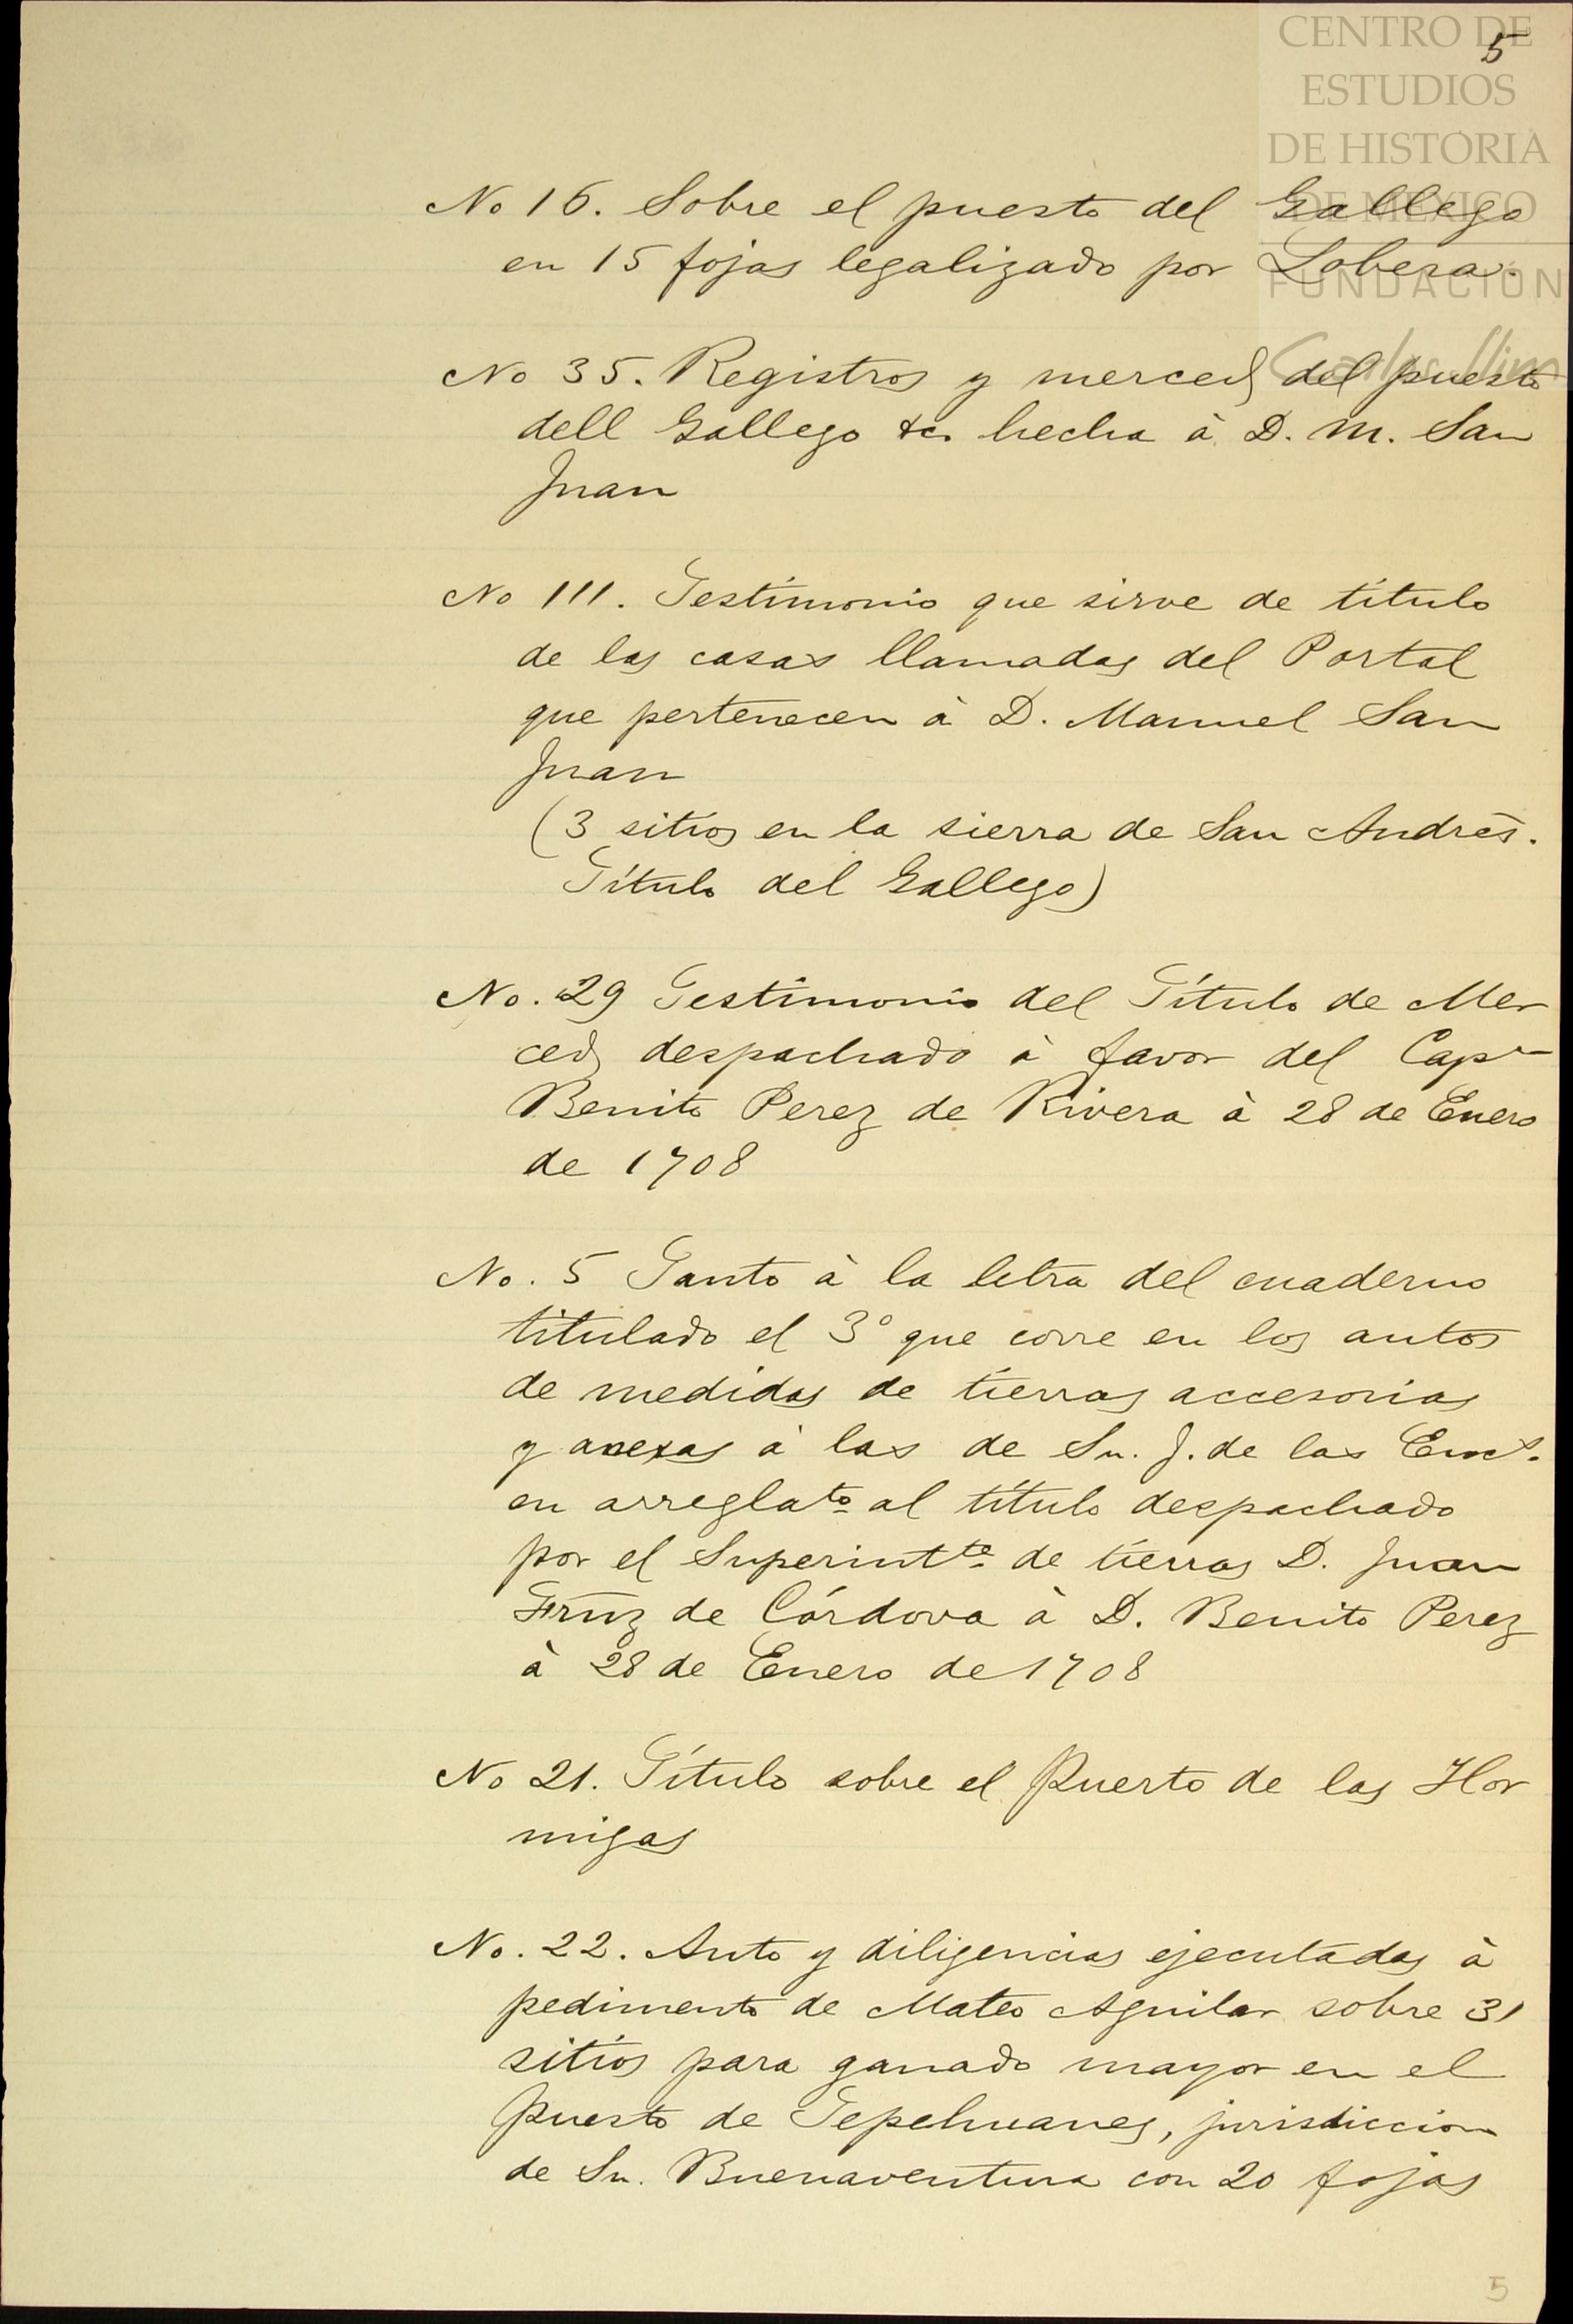 CENTRO DE
5
ESTUDIOS
DE HISTORIA
DE MEXICO
FUNDACION
Carlos Slim
No 16. Sobre el puesto del Gallego
en 15 fojas legalizado por Lobera.
No 35. Registros y merced del puesto
dell Gallego &c. hecha à D. M. San
Juan
No 111. Testimonio que sirve de titulo
de las casas llamadas del Portal
que pertenecen à D. Manuel San
Juan
(3 sitios en la sierra de San Andrès.
Título del Gallego)
No. 29 Testimonio del Título de Mer
ced despachado à favor del Capn
Benito Perez de Rivera à 28 de Enero
de 1708
No. 5 Tanto à la letra del cuaderno
titulado el 3º que corre en los autos
de medidas de tierras accesorias
y anexas à las de Sn. J. de las Encs.
en arreglato al título despachado
por el Superintte de tierras D. Juan
Frnz de Córdova à D. Benito Perez
à 28 de Enero de 1708
No 21. Título sobre el Puerto de las Hor
migas
No. 22. Auto y diligencias ejecutadas à
pedimento de Mateo Aguilar sobre 31
sitios para ganado mayor en el
puesto de Tepehuanes, jurisdiccion
de Sn. Buenaventura con 20 fojas
5